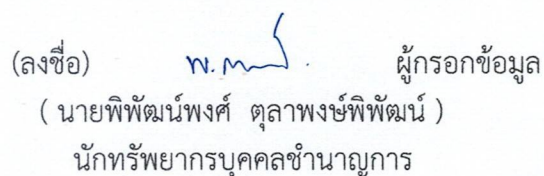 (ลงชื่อ) ผู้กรอกข้อมูล
( นายพิพัฒน์พงศ์ ตุลาพงษ์พิพัฒน์ )
นักทรัพยากรบุคคลชำนาญการ